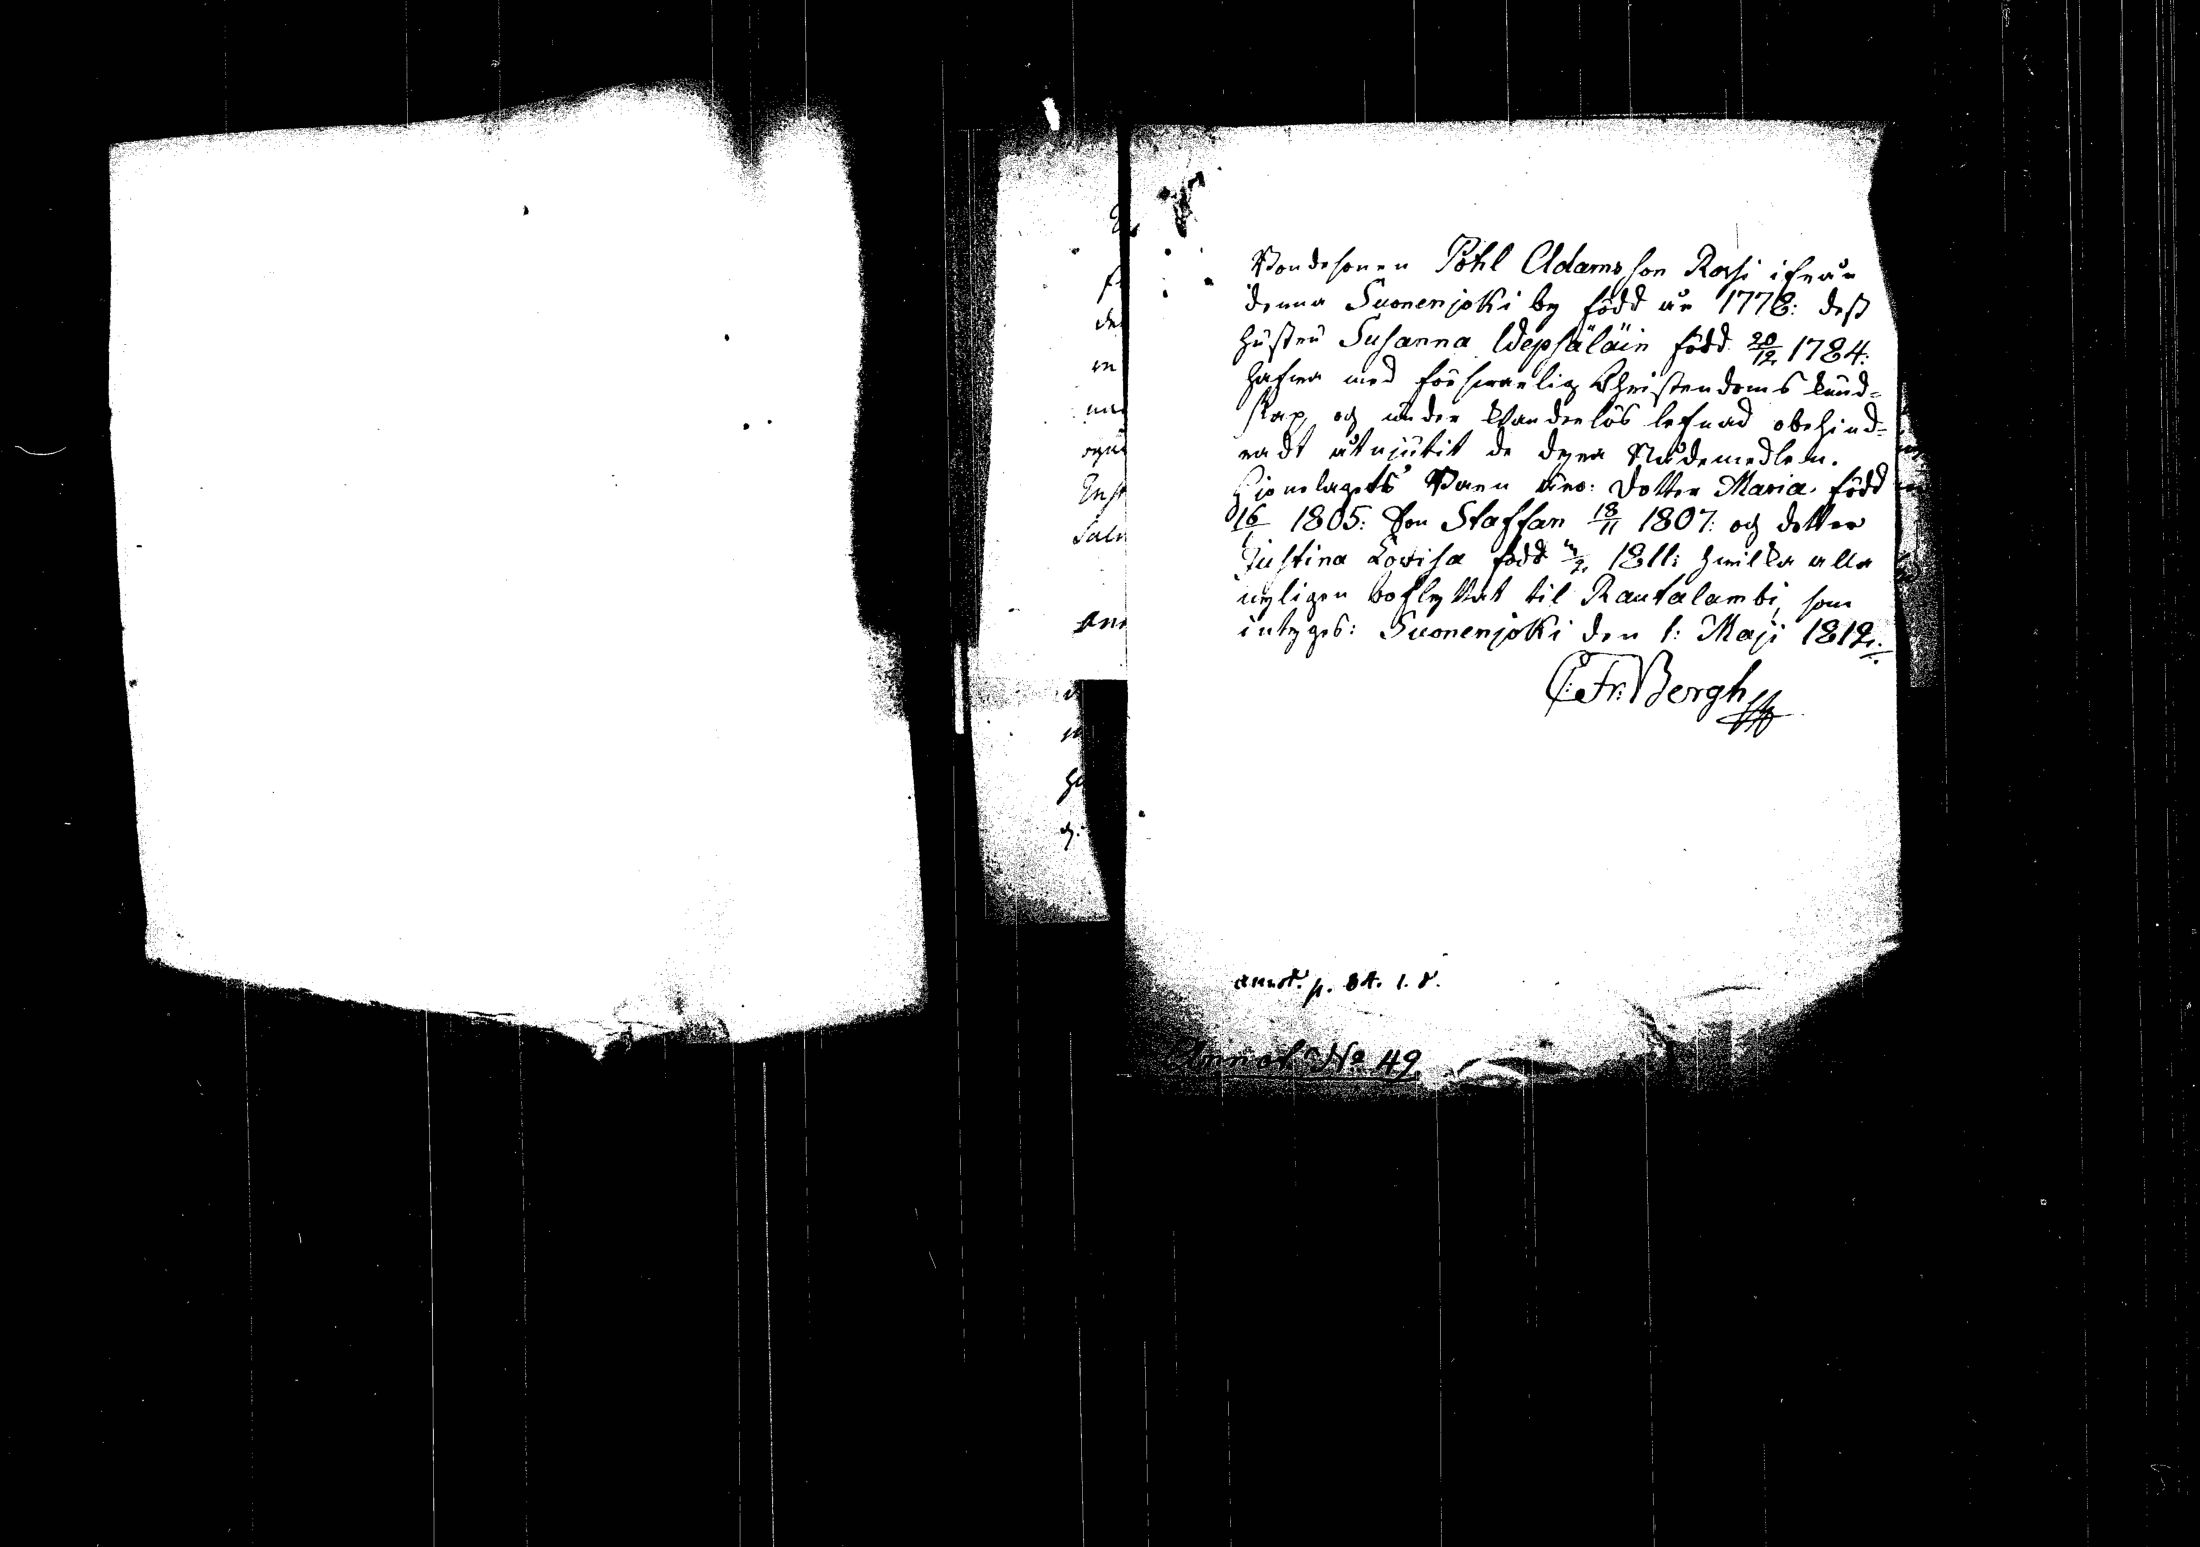 Bondesonen Påhl Adamsson Rossi ifrån
denna Suonenjoki by född år 1778: dess
hustru Susanna Wepsäläin född 20/12 1784:
hafwa med förswarlig Christendoms kund=
skap, och under klanderlös lefnad obehind=
radt åtnjutit de dyra Nådemedlen.
Hjonelagets Barn äro: dotter Maria född
16/1 1805: Son Staffan 18/11 1807: och dotter
Justina Lowisa född /2 1811: hwilka alla
nyligen bortflyttat til Rautalambi, som
intyges: Suonenjoki den 1: Maji 1812.
C: Fr: Bergh
annot. p. 84. 1. 8.
Annot No 49